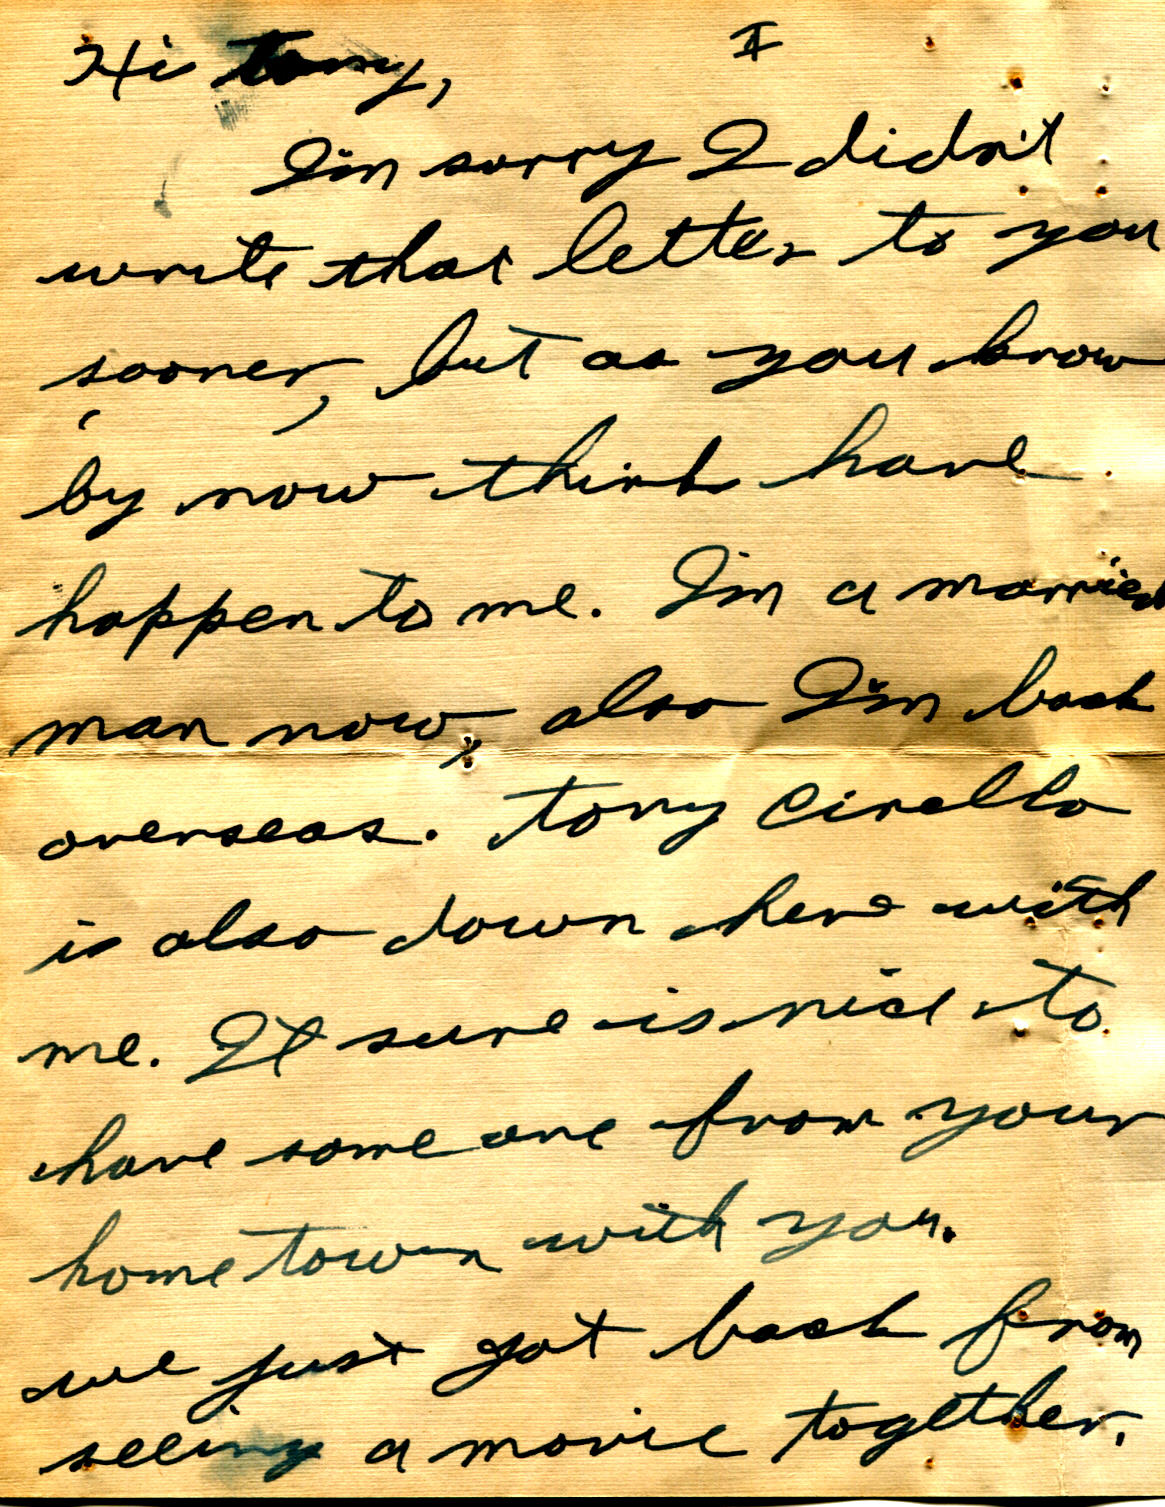 Hi Tony, II
I'm sorry I didn't
write that letter to you
sooner, but as you know
by now think have
happen to me. I'm a married
man now, also I'm back
overseas. Tony Cirello
is also down here with
me. It sure is nice to
have some one from your
home town with you.
we just got back from
seeing a movie together.